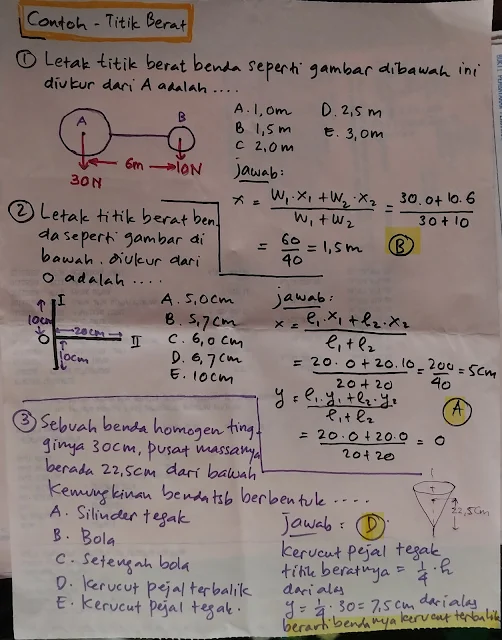 Contoh - Titik Berat
① Letak titik berat benda seperti gambar dibawah ini
diukur dari A adalah ....
A
B
6m
10N
30N
A. 1,0m D. 2,5 m
B 1,5 m E. 3,0m
C 2,0 m
jawab:
x = W₁·X₁ + W₂·X₂ / W₁ + W₂ = 30.0+10.6 / 30+10
= 60/40 = 1,5 m Ⓑ
② Letak titik berat ben
da seperti gambar di
bawah. diukur dari
O adalah ....
I
10cm
O
20cm
II
10cm
A. 5,0cm
B. 5,7cm
C. 6,0 cm
D. 6,7cm
E. 10cm
jawab:
x = ℓ₁.X₁ + ℓ₂.X₂ / ℓ₁ + ℓ₂
= 20.0 + 20.10 / 20+20 = 200/40 = 5cm
y = ℓ₁.y₁ + ℓ₂.y₂ / ℓ₁ + ℓ₂
Ⓐ
= 20.0+20.0 / 20+20 = 0
③ Sebuah benda homogen ting-
ginya 30cm, pusat massanya
berada 22,5cm dari bawah
Kemungkinan benda tsb berbentuk ....
A. Silinder tegak
B. Bola
C. Setengah bola
D. Kerucut pejal terbalik
E. Kerucut pejal tegak.
22,5cm
jawab: Ⓓ.
Kerucut pejal tegak
titik beratnya = 1/4 . h
dari alas
y = 1/4 . 30 = 7,5cm dari alas
berarti bendanya kerucut terbalik